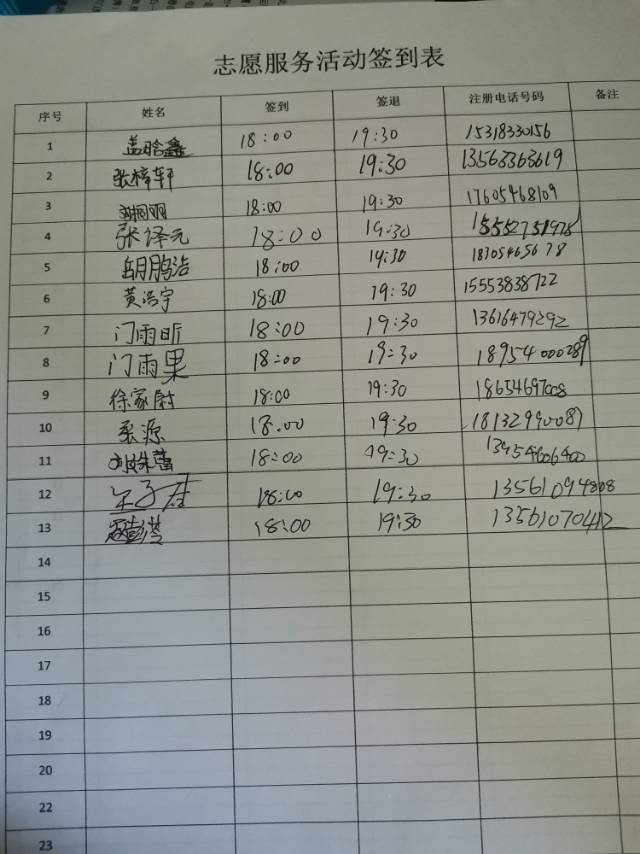 志愿服务活动签到表
序号 姓名 签到 签退 注册电话号码 备注
1 盖晗鑫 18:00 19:30 15318330156
2 张梓轩 18:00 19:30 13563363619
3 18:00 19:30 17605468109
4 张译元 18:00 19:30 15552751978
5 胡鹏浩 18:00 19:30 18305465678
6 黄浩宇 18:00 19:30 15553838722
7 门雨昕 18:00 19:30 13616479292
8 门雨果 18:00 19:30 18954000289
9 徐家尉 18:00 19:30 18654697008
10 源 18.00 19:30 18132990087
11 18:00 19:30 13954606400
12 18:00 19:30 13561094808
13 18:00 19:30 13561070412
14
15
16
17
18
19
20
22
23